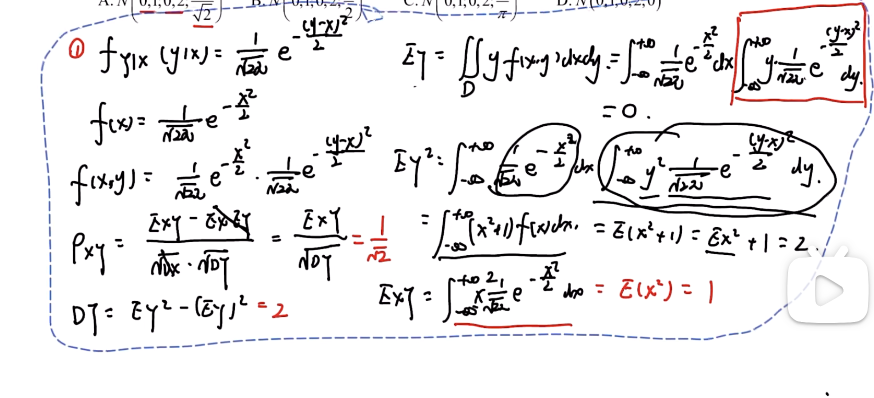 A. N(0,1,0,2,1/√2) B. N(0,1,0,2, C. N(0,1,0,2,1/π) D. N(0,1,0,2,0)
① f_{Y|X}(y|x) = 1/√2π e^{-(y-x)²/2}
f(x) = 1/√2π e^{-x²/2}
f(x,y) = 1/√2π e^{-x²/2} · 1/√2π e^{-(y-x)²/2}
ρxy = (EXY - EXEY)/(√DX · √DY) = EXY/√DY = 1/√2
DY = EY² - (EY)² = 2
EY = ∬_D y f(x,y) dxdy = ∫_{-∞}^{+∞} 1/√2π e^{-x²/2} dx ∫_{-∞}^{+∞} y · 1/√2π e^{-(y-x)²/2} dy.
= 0.
EY² = ∫_{-∞}^{+∞} 1/√2π e^{-x²/2} dx ∫_{-∞}^{+∞} y² 1/√2π e^{-(y-x)²/2} dy.
= ∫_{-∞}^{+∞} (x²+1) f(x) dx. = E(x²+1) = EX² + 1 = 2.
EXY = ∫_{-∞}^{+∞} x² 1/√2π e^{-x²/2} dx = E(x²) = 1